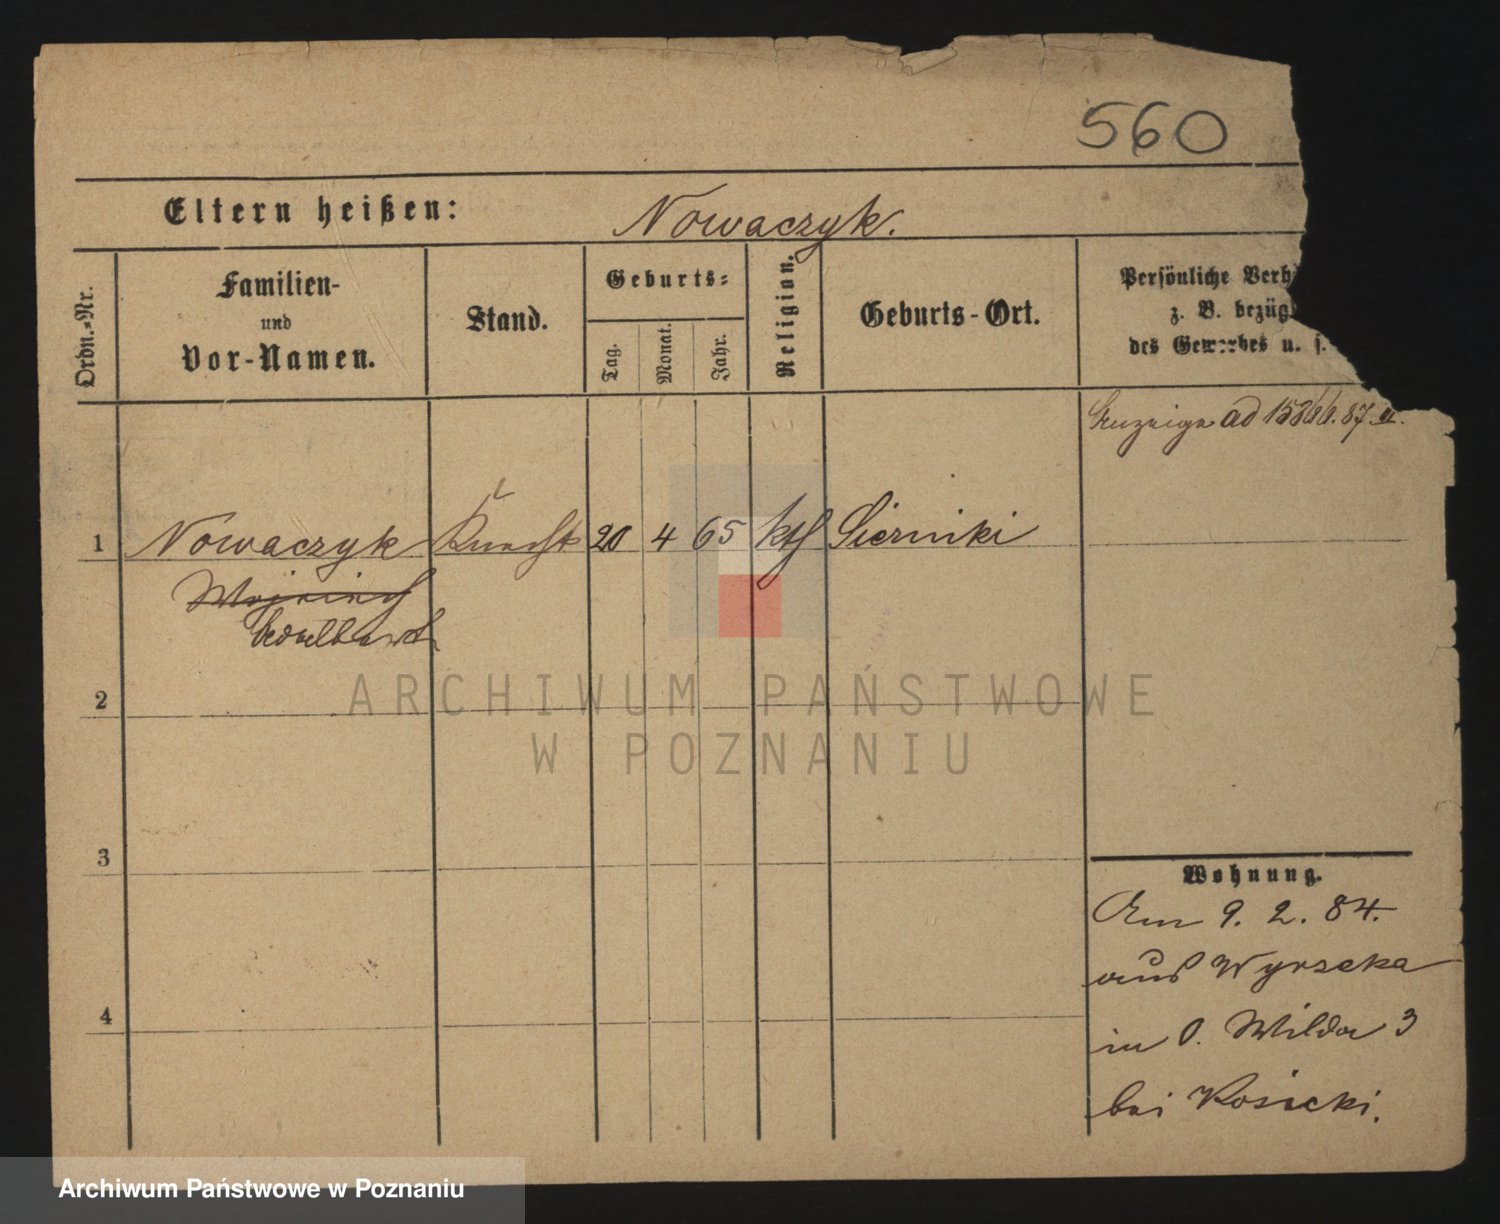 560
Eltern heißen: Nowaczyk.
Ordn.-Nr.
Familien-
und
Vor-Namen.
Stand.
Geburts-
Tag.
Monat.
Jahr.
Religion.
Geburts-Ort.
Persönliche Verh
z. B. bezüg
des Gewerbes u. s.
Anzeige ad 87
1 Nowaczyk Knecht 20 4 65 kth Sierniki
2
3
4
Wohnung.
Am 9. 2. 84.
aus Wyrzeka
in O. Wilda 3
bei Kosicki.
ARCHIWUM PAŃSTWOWE
W POZNANIU
Archiwum Państwowe w Poznaniu